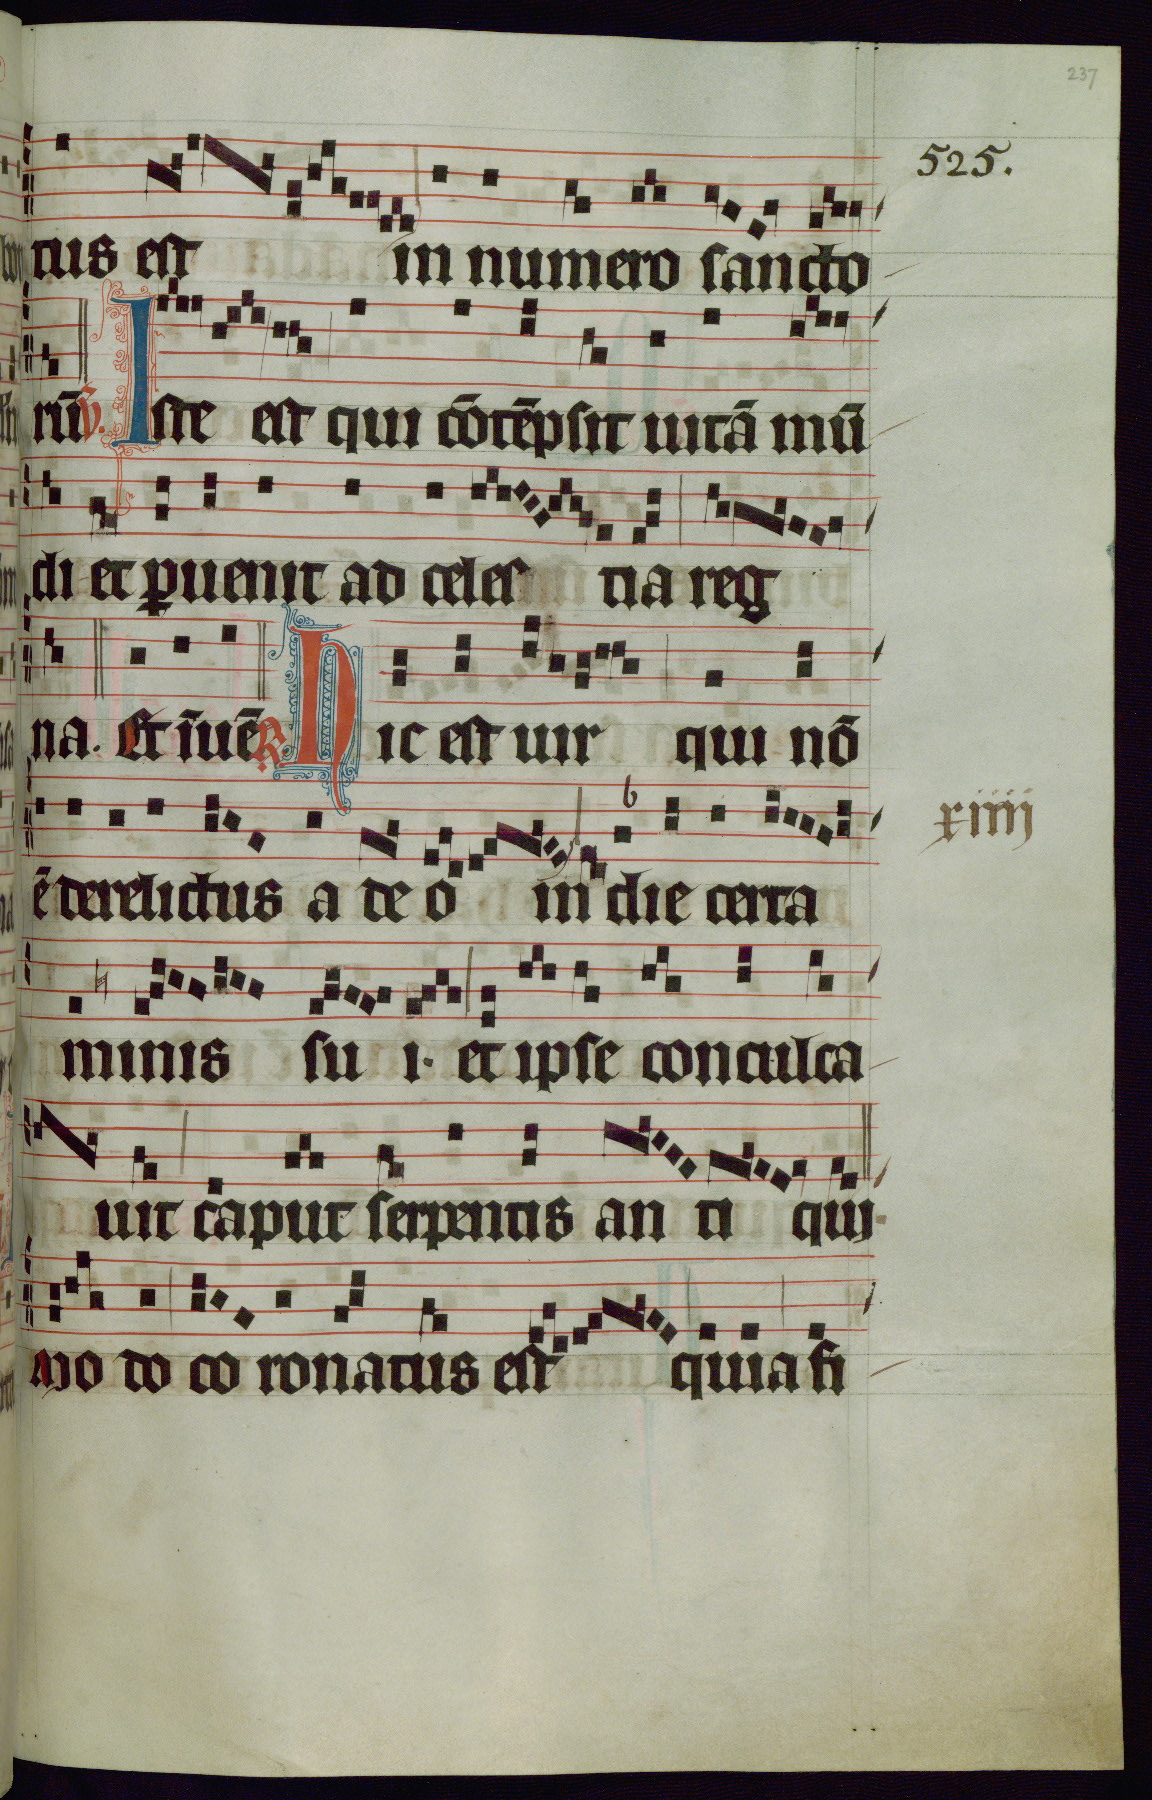 237
525.
tus est in numero sancto
rū ꝟ. Iste est qui cōtēpsit uitā mū
di et ꝑuenit ad celes tia reg
na. Et īuē ℟. Hic est uir qui nō
xiiij
ē derelictus a deo in die certa
minis su i. et ipse conculca
uit caput serpentis an ti qui
mo do co ronatus est quia fi